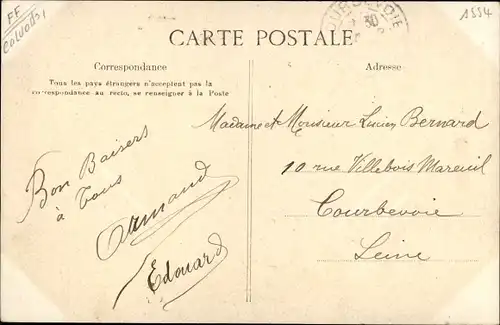 FF
1554
CARTE POSTALE
Correspondance
Tous les pays étrangers n'acceptent pas la
correspondance au recto, se renseigner à la Poste
Bon Baisers
à Tous
Armand
Edouard
Adresse
Madame et Monsieur Lucien Bernard
10 rue Villebois Mareuil
Courbevoie
Seine